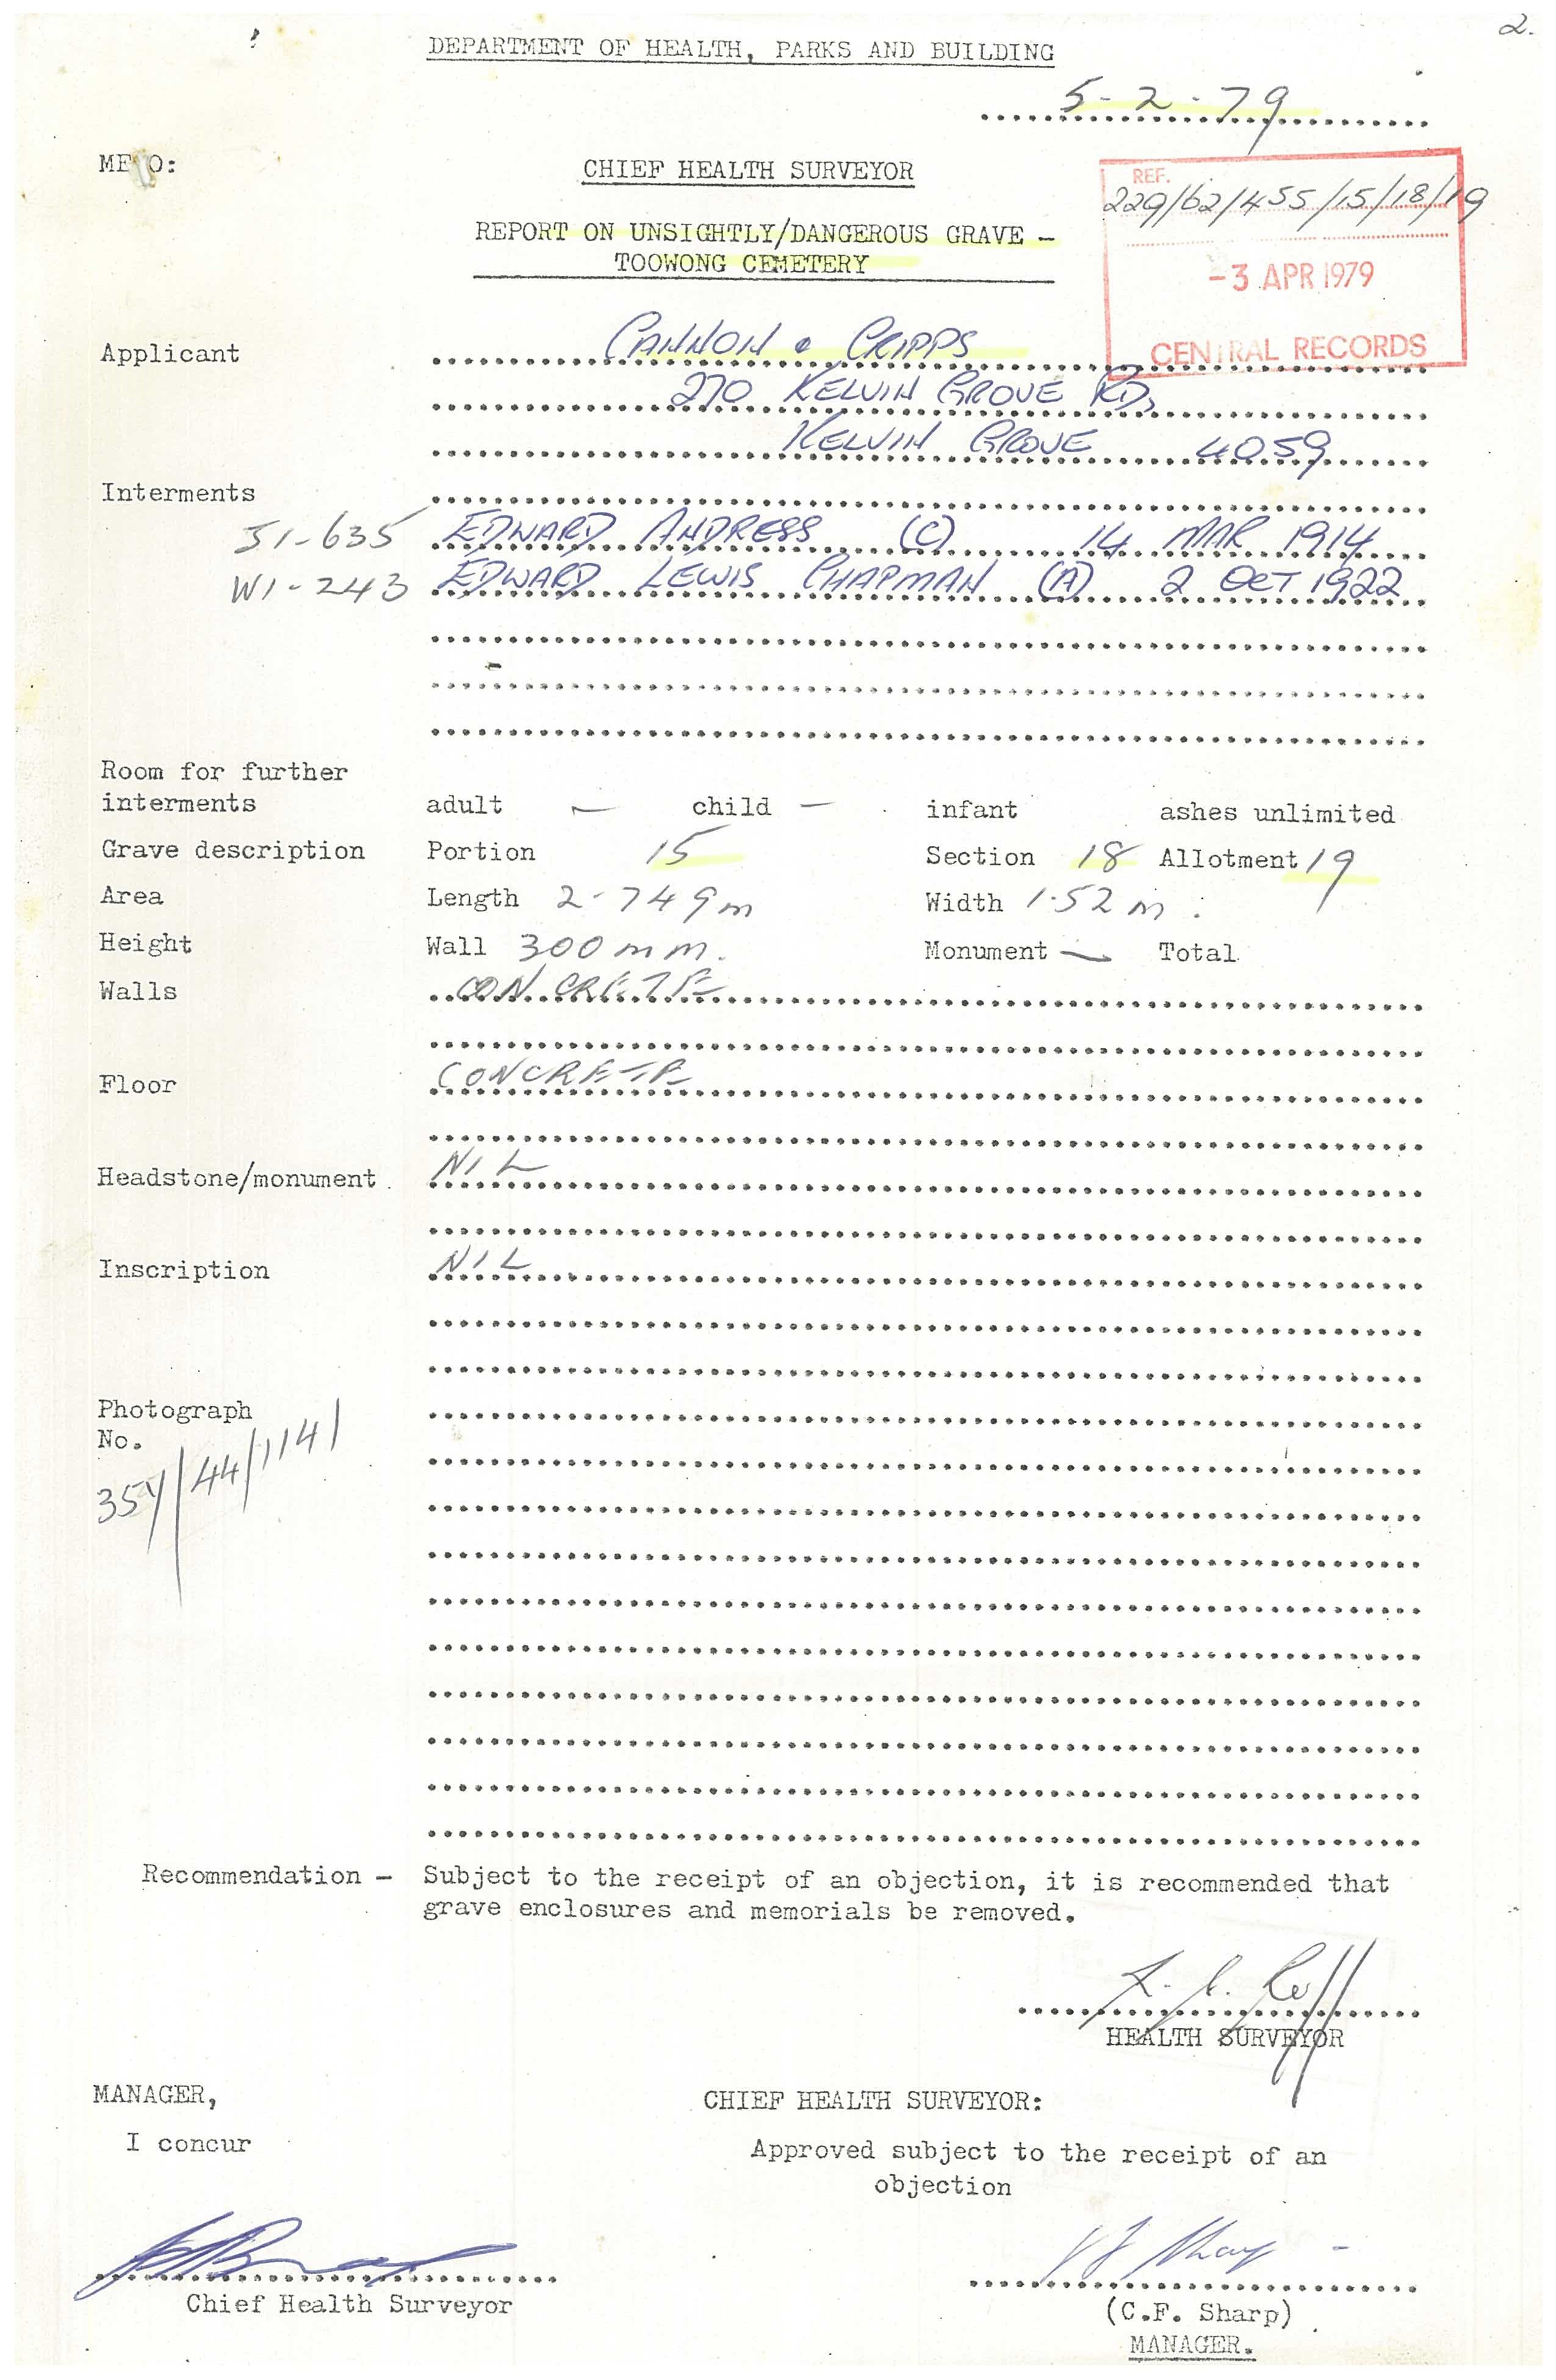 2.
DEPARTMENT OF HEALTH, PARKS AND BUILDING
5-2-79
MEMO:
CHIEF HEALTH SURVEYOR
REF.
229/62/455/15/18/19
REPORT ON UNSIGHTLY/DANGEROUS GRAVE -
TOOWONG CEMETERY
-3 APR 1979
CENTRAL RECORDS
Applicant CANNON & CRIPPS
270 KELVIN GROVE RD,
KELVIN GROVE 4059
Interments
J1-635 EDWARD ANDRESS (C) 14 MAR 1914
W1-243 EDWARD LEWIS CHAPMAN (A) 2 OCT 1922
Room for further
interments adult — child — infant ashes unlimited
Grave description Portion 15 Section 18 Allotment 19
Area Length 2.749m Width 1.52m.
Height Wall 300mm. Monument — Total
Walls CONCRETE
Floor CONCRETE
Headstone/monument NIL
Inscription NIL
Photograph
No.
/44/1141
Recommendation - Subject to the receipt of an objection, it is recommended that
grave enclosures and memorials be removed.
HEALTH SURVEYOR
MANAGER, CHIEF HEALTH SURVEYOR:
I concur Approved subject to the receipt of an
objection
Chief Health Surveyor
(C.F. Sharp)
MANAGER.